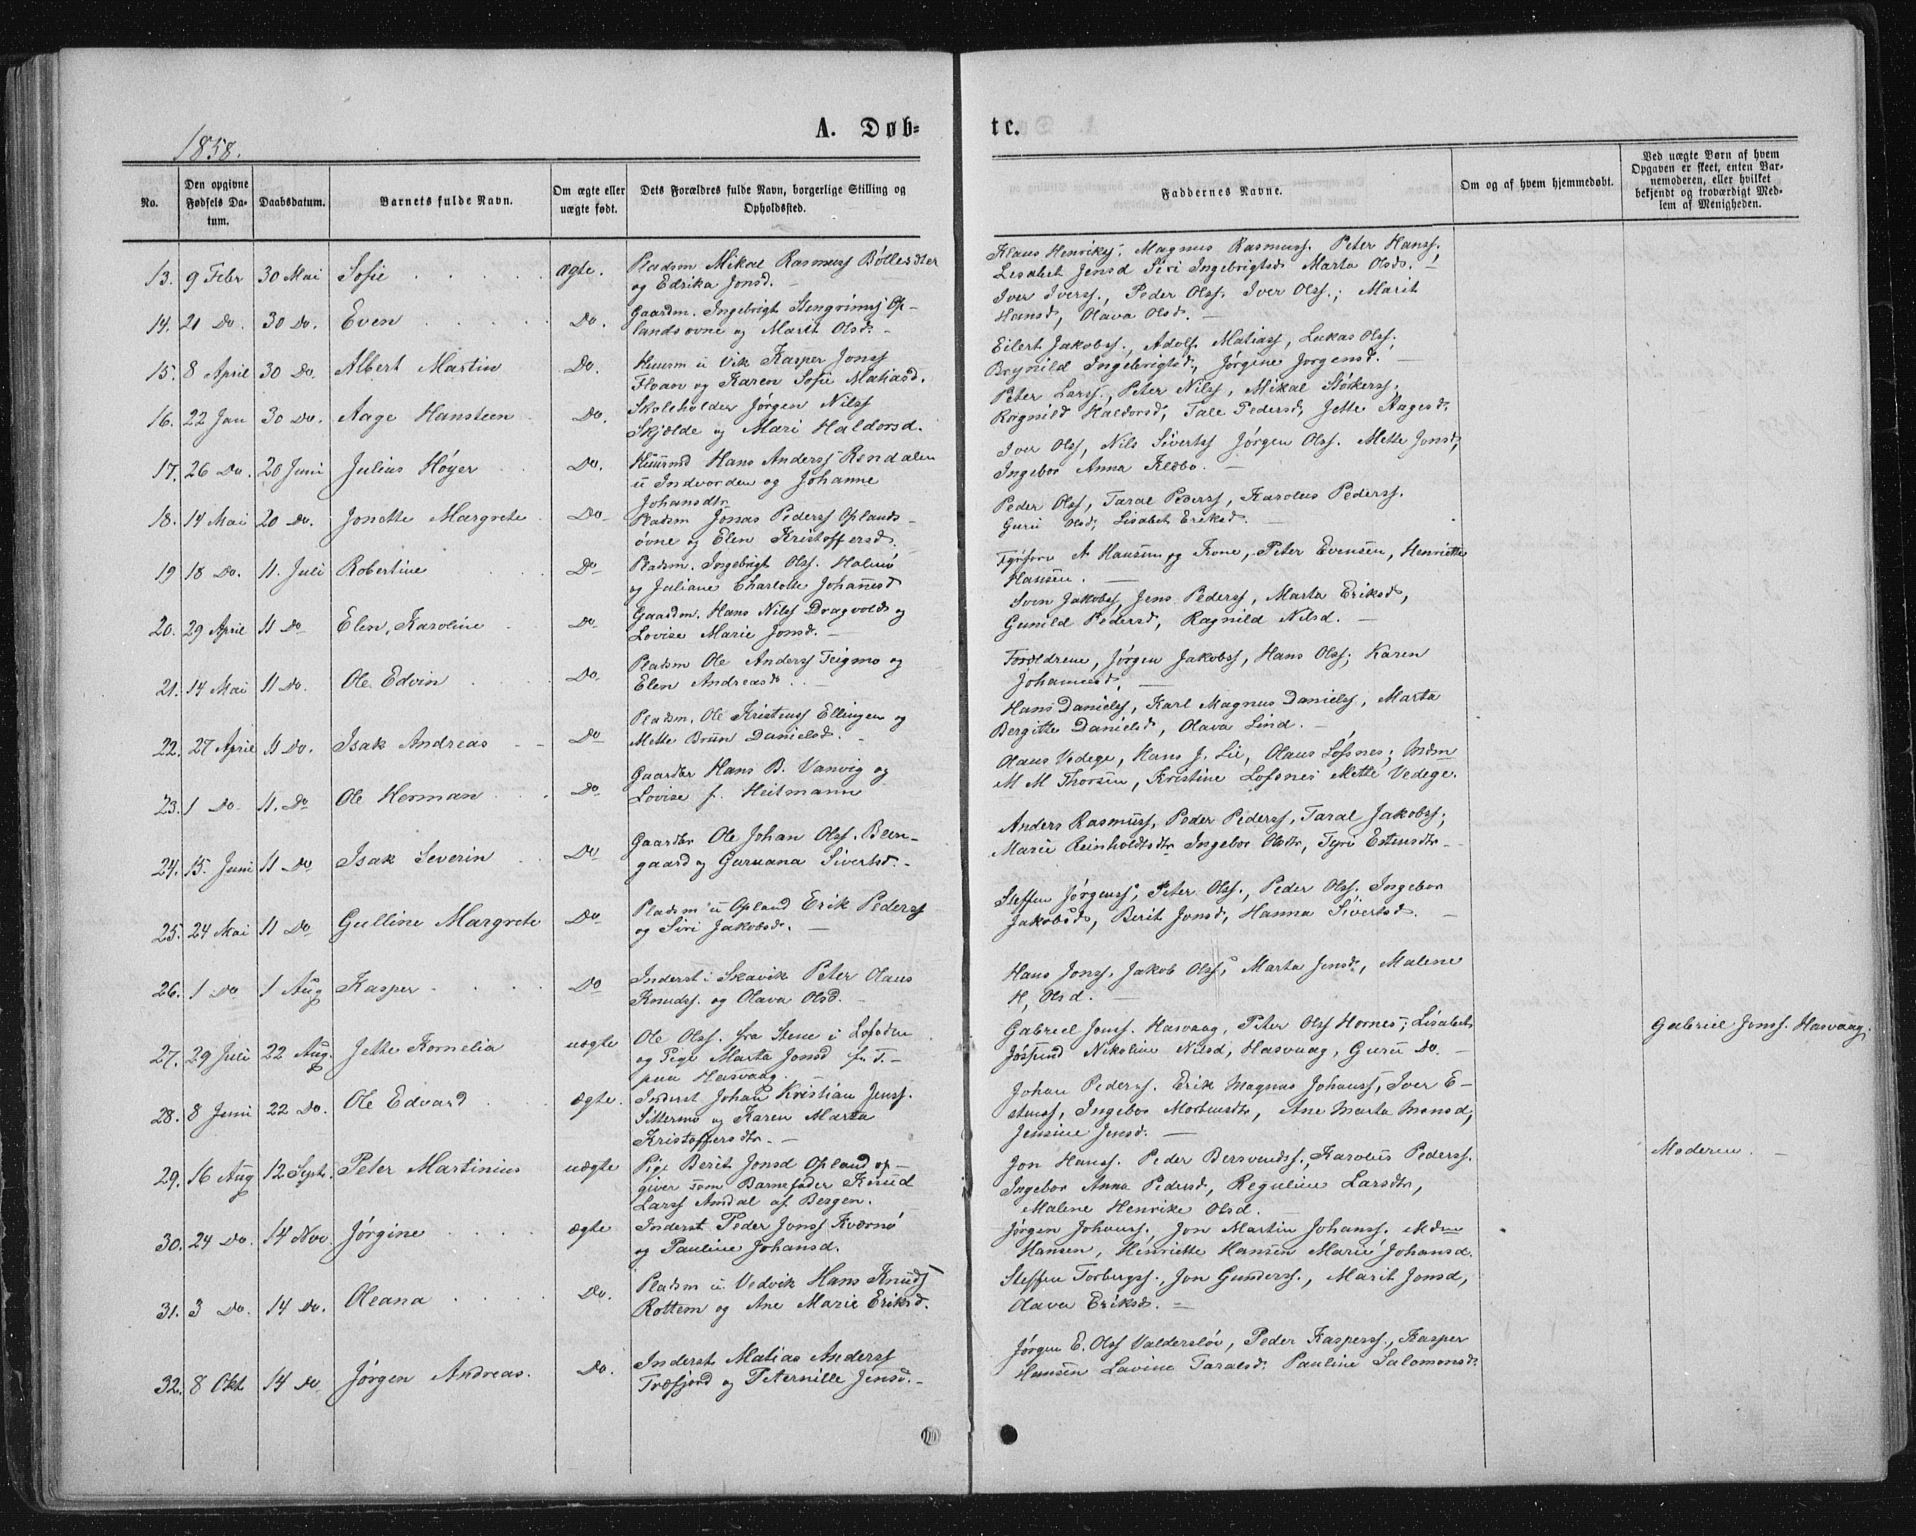 1858.
A. Døb-
te.
No.
Den opgivne Fødsels Datum.
Daabsdatum.
Barnets fulde Navn.
Om ægte eller uægte født.
Dets Forældres fulde Navn, borgerlige Stilling og Opholdssted.
Faddernes Navne.
Om og af hvem hjemmedøbt.
Ved uægte Børn af hvem Opgaven er skeet, enten Barnemoderen, eller hvilket bekjendt og troværdigt Medlem af Menigheden.
13. 9 Febr 30 Mai Sofie ægte. Pladsm Mikal Rasmuss
og Edrika Jonsd. —
Klaus Henriks, Magnus Rasmuss, Peter Hanss.
Lisabet Jensd Siri Ingebrigtsd Marta Olsd. —
14. 21 Do. 30 Do. Even Do. Gaardm. Ingebrigt Op-
landsovne og Marit Olsd. —
Iver Iverss., Peder Olss. Iver Olss.; Marit
Hansd, Olava Olsd. —
15. 8 April 30 Do. Albert Martin Do. Huusm u Vik Kasper Jonss
Floan og Karen Sofie Matiasd.
Eilert Jakobss., Adolf Matiass, Lukas Olss.
Brynild Ingebrigtsd., Jørgine Jørgensd. —
16. 22 Jan 30 Do. Aage Hansteen Do. Skoleholder Jørgen Nilss
Skjølde og Mari Haldorsd.
Peter Larss., Peter Nilss, Mikal Størkerss.
Ragnild Haldorsd, Tale Pedersd, Jette Aagesd.
17. 26 Do. 20 Juni Julius Høyer Do. Huusmd Hans Anderss Rendalen
u Indvorden og Johanne
Johansdtr
Iver Olss, Nils Sivertss Jørgen Olss. Mette Jonsd,
Ingebor Anna —
18. 14 Mai 20 Do. Jonette Margrete Do Pladsm Jonas Pederss Oplands-
øvne og Elen Kristoffersd.
Peder Olss, Taral Pederss, Karolus Pederss.
Guru Olsd, Lisabet Eriksd. —
19 18 Do. 11. Juli Robertine Do Pladsm. Ingebrigt Olss. Holmø
og Juliane Charlotte Johansd
A Hansen og Kone, Peter Evensen, Henriette
Hansen. —
20. 29 April 11 Do Elen, Karoline Do. Gaardm. Hans Nilss Dragvolds og
Lovise Marie Jonsd. —
Sven Jakobss, Jens Pederss, Marta Eriksd,
Gunild Pedersd, Ragnild Nilsd. —
21. 14 Mai 11 Do. Ole Edvin Do. Pladsm Ole Anderss Teigmo og
Elen Andreasd. —
Forældrene, Jørgen Jakobss, Hans Olss; Karen
Johannesd. —
22. 27 April 11 Do. Isak Andreas Do Pladsm. Ole Kristenss Ellingen og
Mette Brun Danielsd. —
Hans Daniels, Karl Magnus Daniels, Marta
Bergitte Danielsd, Olava Lind. —
23. 1 Do. 11. Do Ole Herman Do Gaardbr Hans B. Vanvig og
Lovise f. Heitmann
Olaus Vedege, Hans J. Lie, Olaus Lofsnes; Mdm
M M Thorsen, Kristine Lofsnes Mette Vedege.
24. 15. Juni 11 Do Isak Severin Do Gaardbr Ole Johan Olss. Buen-
gaard og Guruana Sivertsd. —
Anders Rasmuss, Peder Pederss, Taral Jakobss;
Marie Reinholdtsdtr Ingebor Olsdtr, Tyri Estensdtr —
25. 24 Mai 11 Do Gulline Margrete Do Pladsm u Opland Erik Pederss
og Siri Jakobsd. —
Steffen Jørgenss, Peter Olss., Peder Olss. Ingebor
Jakobsd, Berit Jonsd, Hanna Sivertsd. —
26. 1 Do 1 Aug Kasper Do Inderst i Skavik Peter Olaus
Knudss. og Olava Olsd. —
Hans Jonss, Jakob Olss, Marta Jensd, Malene
H. Olsd. —
27. 29 Juli 22 Aug. Jette Kornelia uægte Ole Olss. fra Stene i Lofoden
og Pige Marta Jonsd f. T.
paa Hasvaag.
Gabriel Jonss. Hasvaag, Peter Olss Hornes; Lisabet
Nikoline Nilsd, Hasvaag, Guru Do. —
Gabriel Jonss. Hasvaag.
28. 8 Juni 22 Do. Ole Edvard ægte. Inderst Johan Kristian Jenss.
Sittermo og Karen Marta
Kristoffersdtr. —
Johan Pederss. Erik Magnus Johanss, Iver E-
stenss, Ingebor Mortensdtr, Ane Marta Monsd,
Jensine Jensd. —
29. 16 Aug 12 Septr. Peter Martinius uægte Pige Berit Jonsd Opland op-
giver som Barnefader Knud
Larss Amdal af Bergen.
Jon Hanss. Peder Bersvendss., Karolus Pederss.
Ingebor Anna Pedersd, Reguline Larsdtr,
Malene Henrike Olsd. —
Moderen. —
30. 24 Do. 14 Nov. Jørgine ægte Inderst Peder Jonss Kværnø
og Pauline Johansd.
Jørgen Johanss. Jon Martin Johanss. Mdm
Hansen, Henriette Hansen Marie Johansd.
31. 3 Do. 14 Do. Oleana Do. Pladsm u. Vedvik Hans Knuds
Rottem og Ane Marie Eriksd.
Steffen Torbergss., Jon Gunderss., Marit Jonsd,
Olava Eriksd. —
32. 8 Okt 14 Do Jørgen Andreas. Do. Inderst Matias Anderss
Træfjord og Peternille Jensd. —
Jørgen E. Olss Valdersløv, Peder Kasperss., Kasper
Hansen Lavine Taralsd. Pauline Salomonsd.